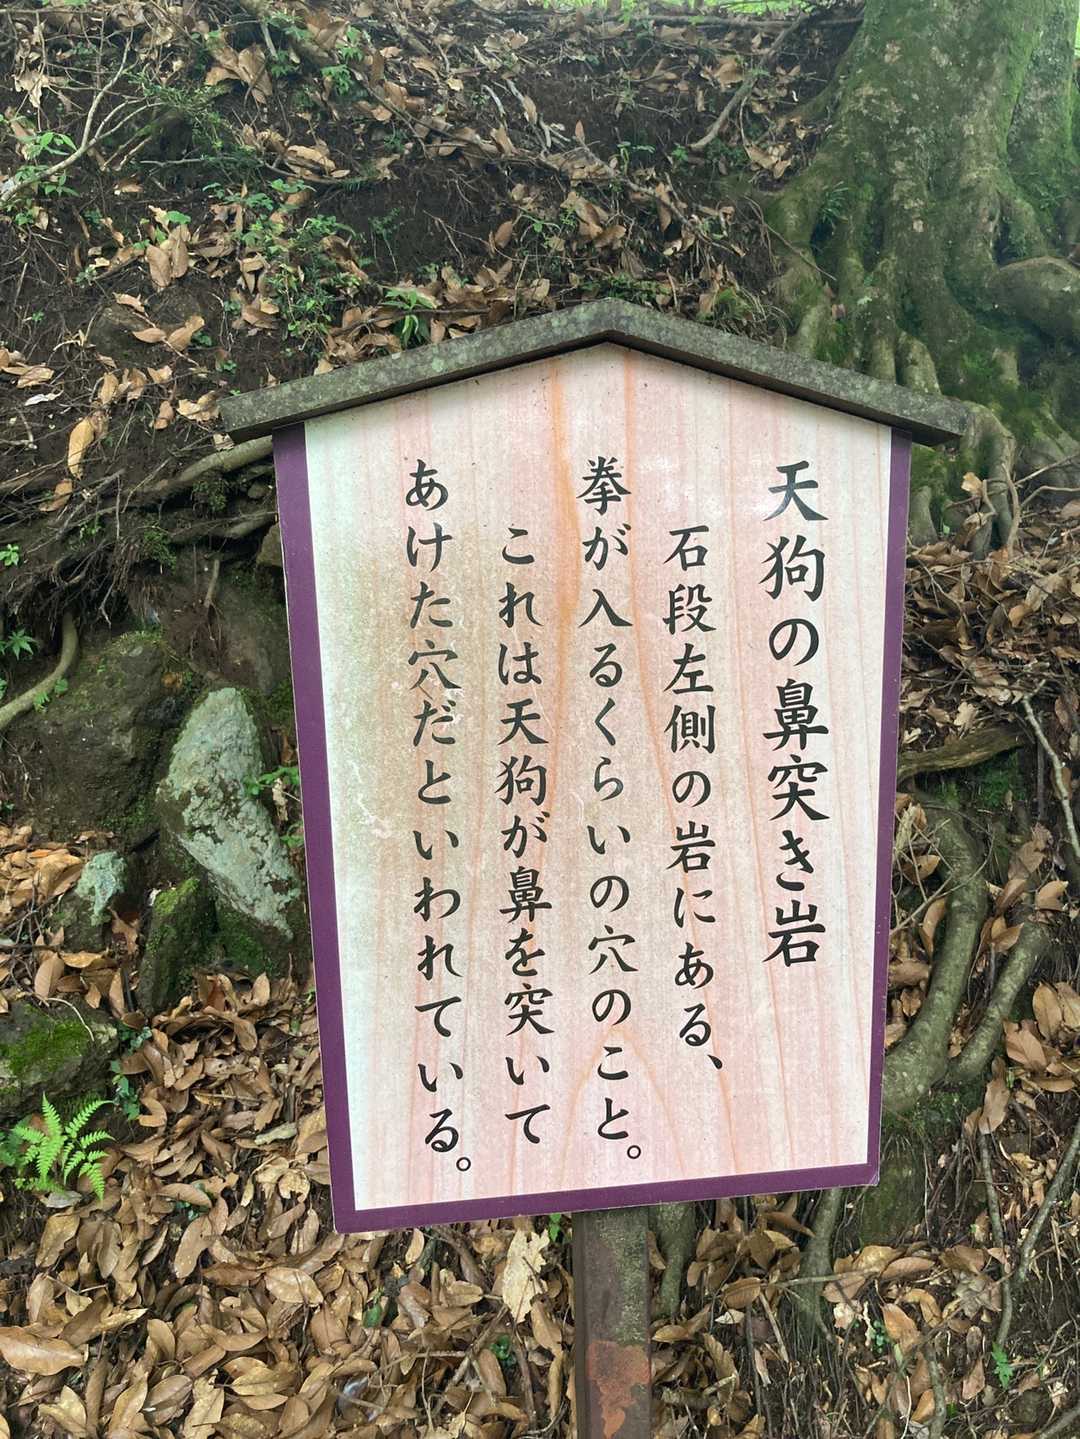 天狗の鼻突き岩
石段左側の岩にある、
拳が入るくらいの穴のこと。
これは天狗が鼻を突いて
あけた穴だといわれている。